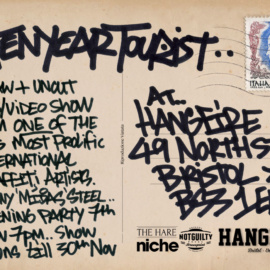 TEN YEAR TOURIST..
W + UNCUT
VIDEO SHOW
M ONE OF THE
S MOST PROLIFIC
TERNATIONAL
FFITI ARTISTS.
NY MIDAS STEEL..
ENING PARTY 7TH
7PM.. SHOW
UNS TILL 30TH NOV
AT..
HANGFIRE
49 NORTH S
BRISTOL
BS3 1E
ITALIA
THE HARE
niche
NOTGUILTY
HANG